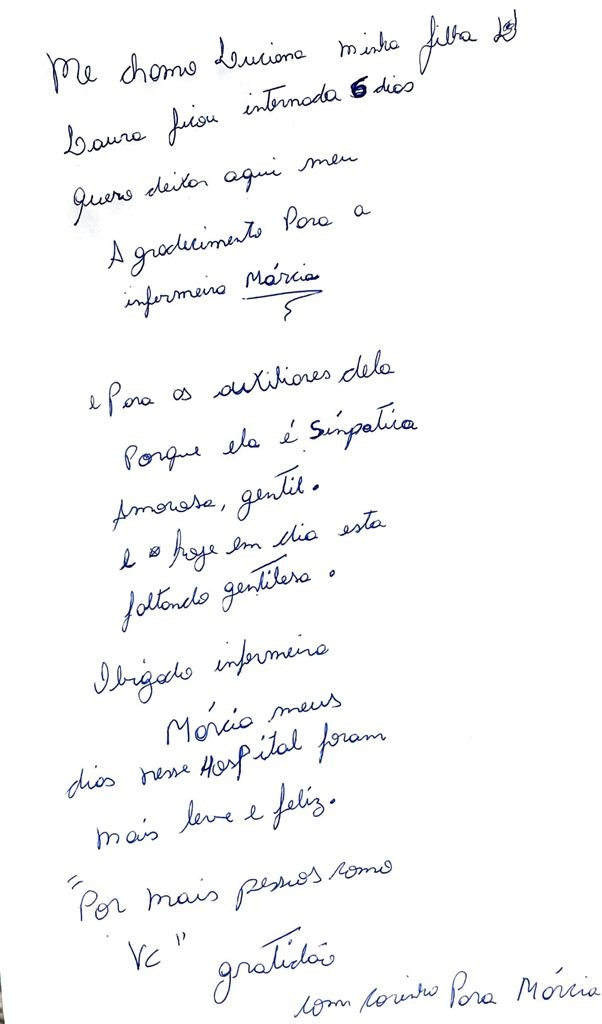 Me chamo Luciana minha filha
Laura ficou internada 6 dias
Quero deixar aqui meu
Agradecimento Para a
infermeira Márcia
e Para as auxiliares dela
Porque ela é Sinpatica
Amorosa, gentil.
e hoje em dia esta
faltando gentilesa.
Obrigado infermeira
Márcia meus
dias nesse Hospital foram
mais leve e feliz.
"Por mais pessoas como
Vc"
gratidão
com carinho Para Márcia